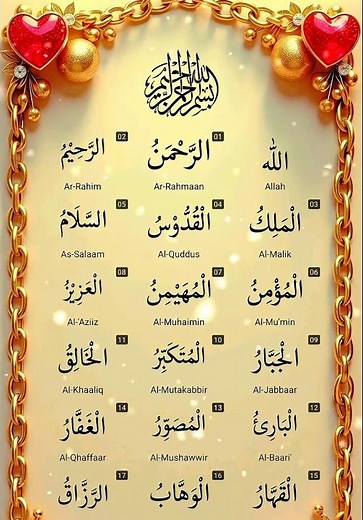 بسم الله الرحمن الرحيم
الله 01 الرَّحْمَنُ 02 الرَّحِيْمُ
Allah Ar-Rahmaan Ar-Rahim
03 الْمَلِكُ 04 الْقُدُّوْسُ 05 السَّلَامُ
Al-Malik Al-Quddus As-Salaam
06 الْمُؤْمِنُ 07 الْمُهَيْمِنُ 08 الْعَزِيْزُ
Al-Mu'min Al-Muhaimin Al-'Aziiz
09 الْجَبَّارُ 10 الْمُتَكَبِّرُ 11 الْخَالِقُ
Al-Jabbaar Al-Mutakabbir Al-Khaaliq
12 الْبَارِئُ 13 الْمُصَوِّرُ 14 الْغَفَّارُ
Al-Baari' Al-Mushawwir Al-Qhaffaar
15 الْقَهَّارُ 16 الْوَهَّابُ 17 الرَّزَّاقُ